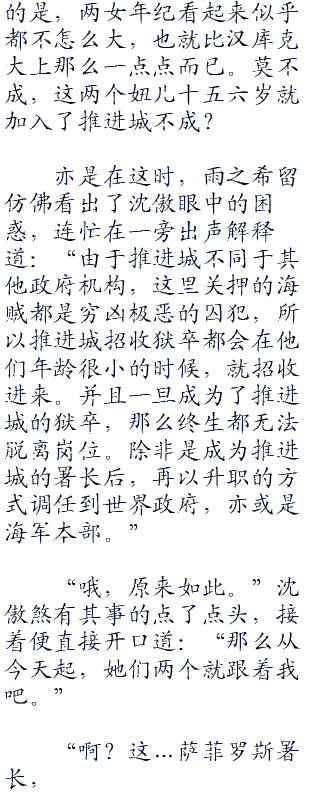 的是，两女年纪看起来似乎
都不怎么大，也就比汉库克
大上那么一点点而已。莫不
成，这两个妞儿十五六岁就
加入了推进城不成？
亦是在这时，雨之希留
仿佛看出了沈傲眼中的困
惑，连忙在一旁出声解释
道：“由于推进城不同于其
他政府机构，这里关押的海
贼都是穷凶极恶的囚犯，所
以推进城招收狱卒都会在他
们年龄很小的时候，就招收
进来。并且一旦成为了推进
城的狱卒，那么终生都无法
脱离岗位。除非是成为推进
城的署长后，再以升职的方
式调任到世界政府，亦或是
海军本部。”
“哦，原来如此。”沈
傲煞有其事的点了点头，接
着便直接开口道：“那么从
今天起，她们两个就跟着我
吧。”
“啊？这…萨菲罗斯署
长，